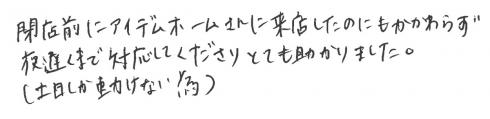 閉店前にアイデムホームさんに来店したのにもかかわらず
夜遅くまで対応してくださりとても助かりました。
(土日しか動けない為)